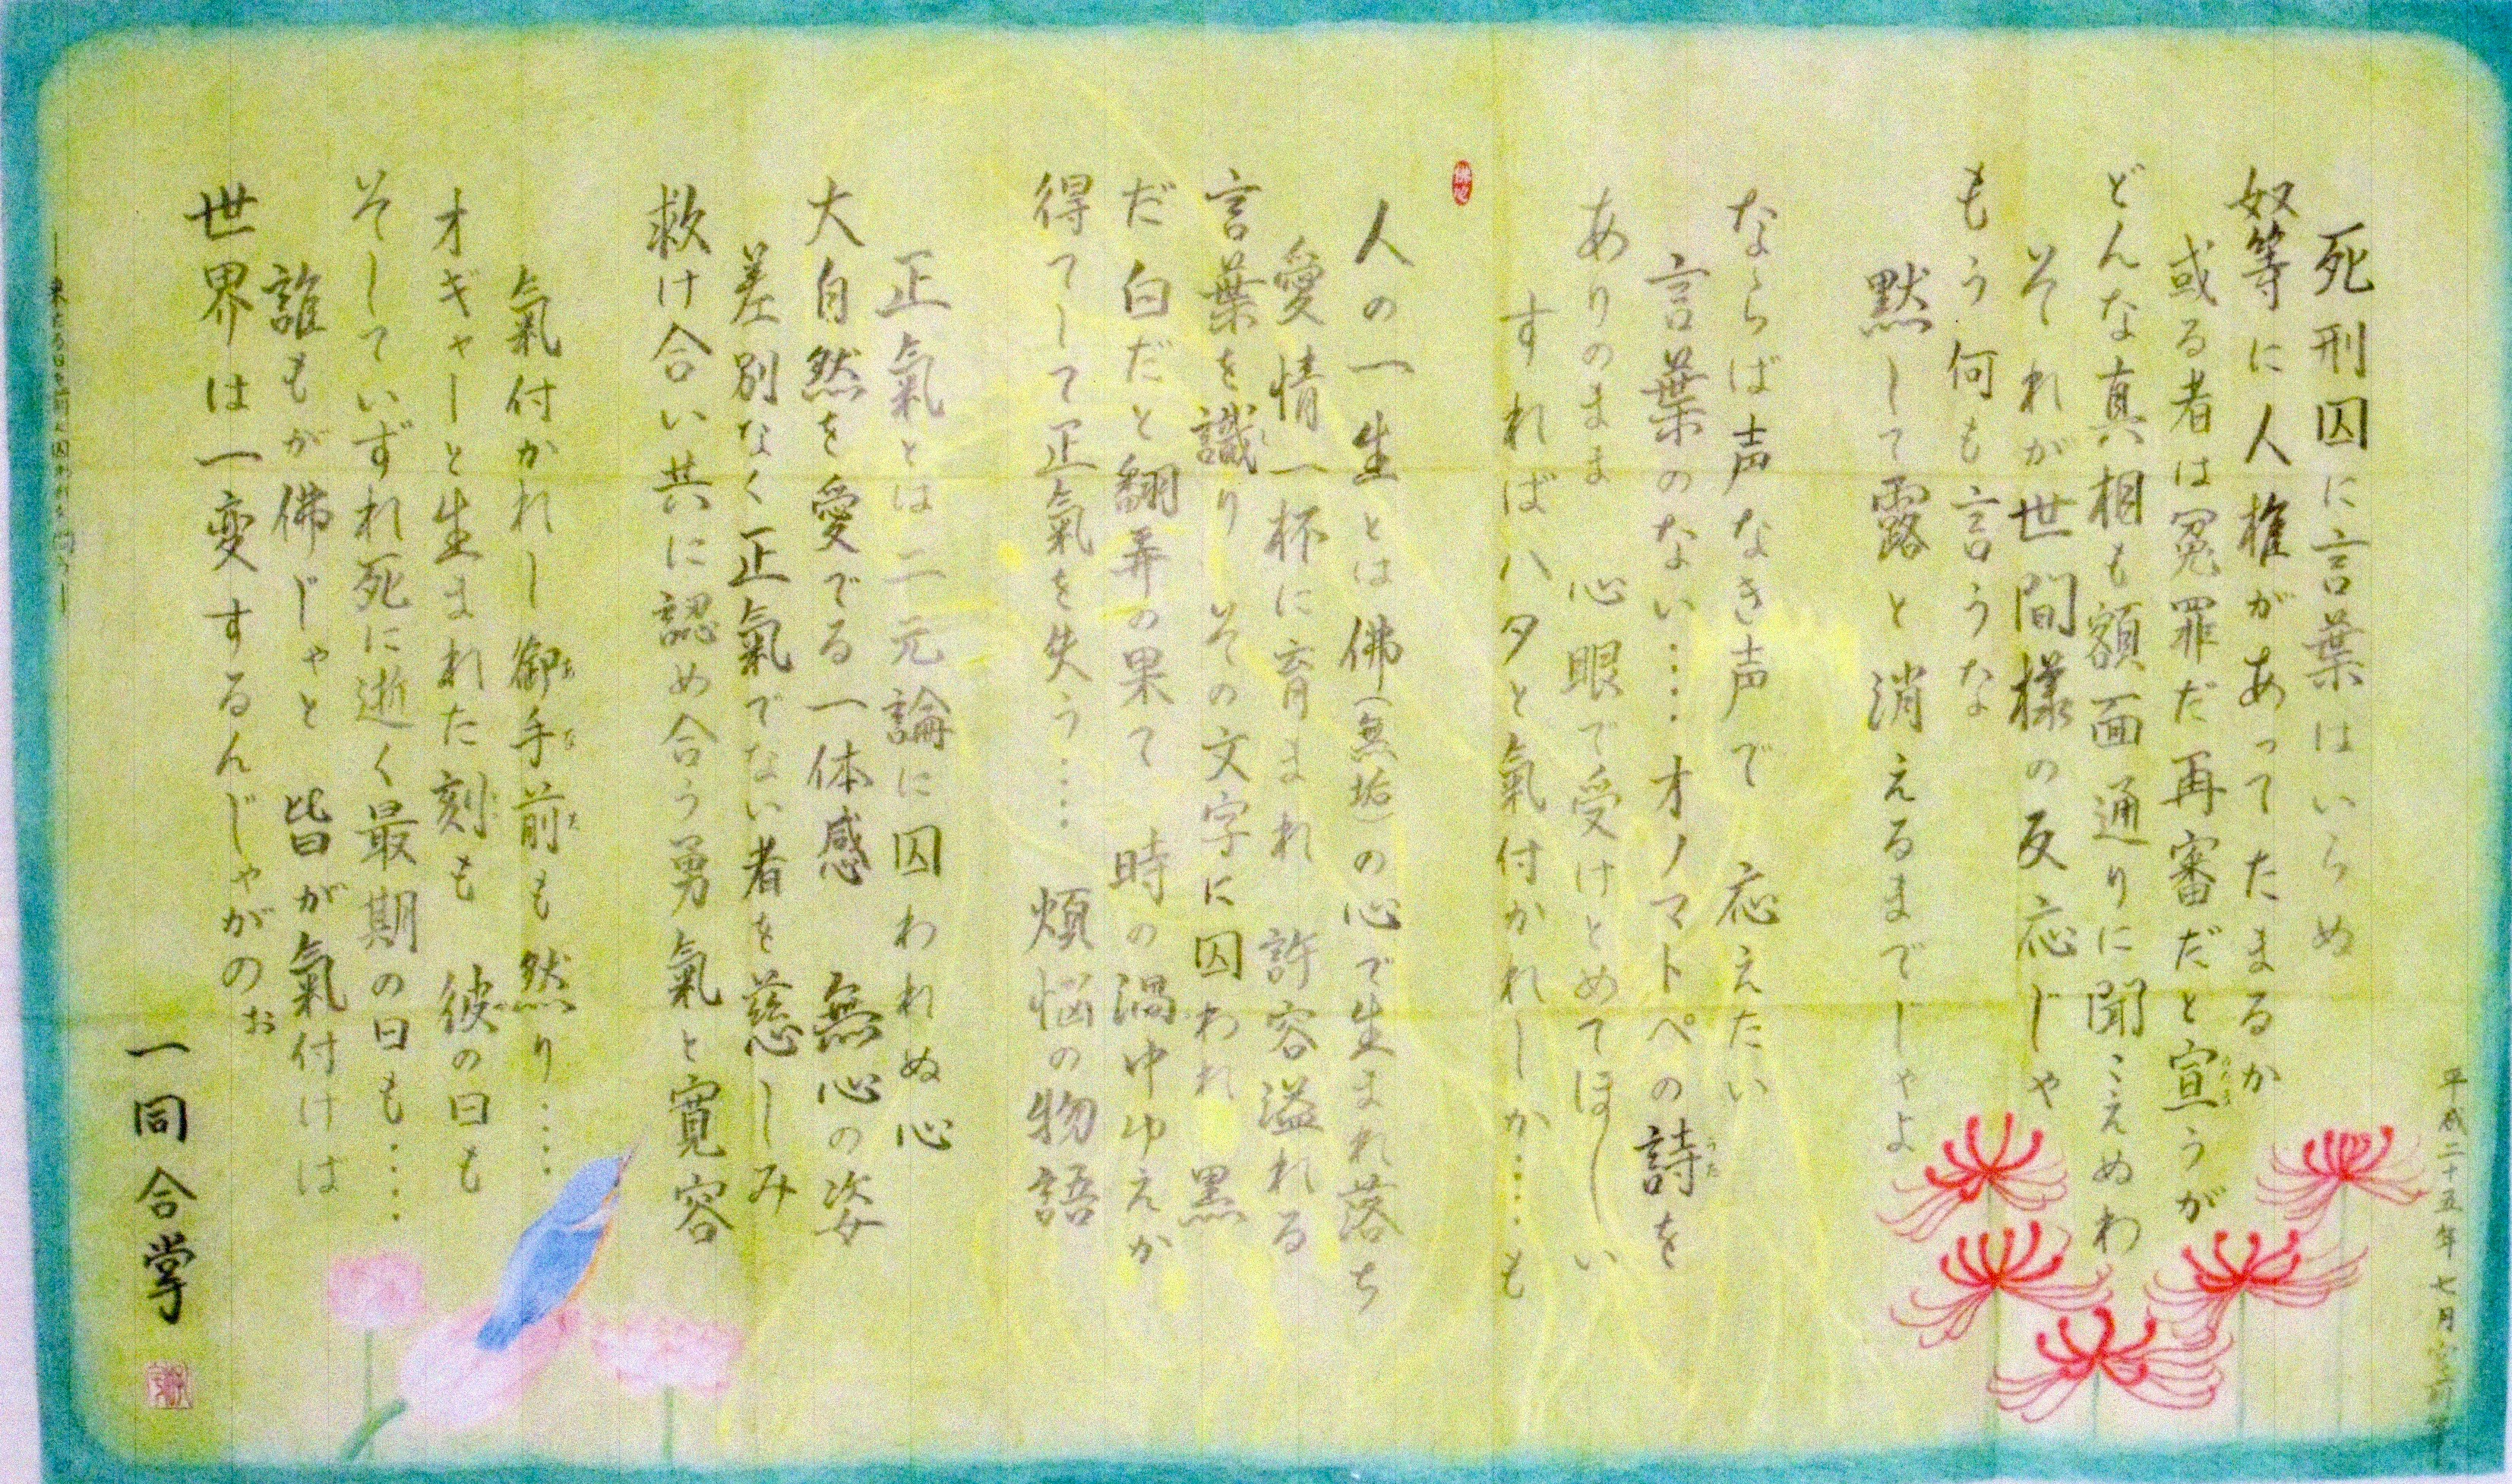 平成二十五年七月
死刑囚に言葉はいらぬ
奴等に人権があってたまるか
或る者は冤罪だ再審だと宣うが
どんな真相も額面通りに聞こえぬわ
それが世間様の反応じゃ
もう何も言うな
黙して露と消えるまでじゃよ
ならば声なき声で 応えたい
言葉のない‥‥オノマトペの詩を
うた
ありのまま 心眼で受けとめてほしい
すればハタと氣付かれしか‥‥も
人の一生とは佛(無垢)の心で生まれ落ち
愛情一杯に育まれ 許容溢れる
言葉を識り その文字に囚われ 黒
だ白だと翻弄の果て 時の渦中ゆえか
得てして正氣を失う‥‥ 煩悩の物語
正氣とは二元論に囚われぬ心
大自然を愛でる一体感 無心の姿
差別なく正氣でない者を慈しみ
救け合い共に認め合う勇氣と寛容
氣付かれし御手前も然り‥‥
オギャーと生まれた刻も 彼の日も
そしていずれ死に逝く最期の日も‥‥
誰もが佛じゃと 皆が氣付けは
世界は一変するんじゃがのぉ
一同合掌